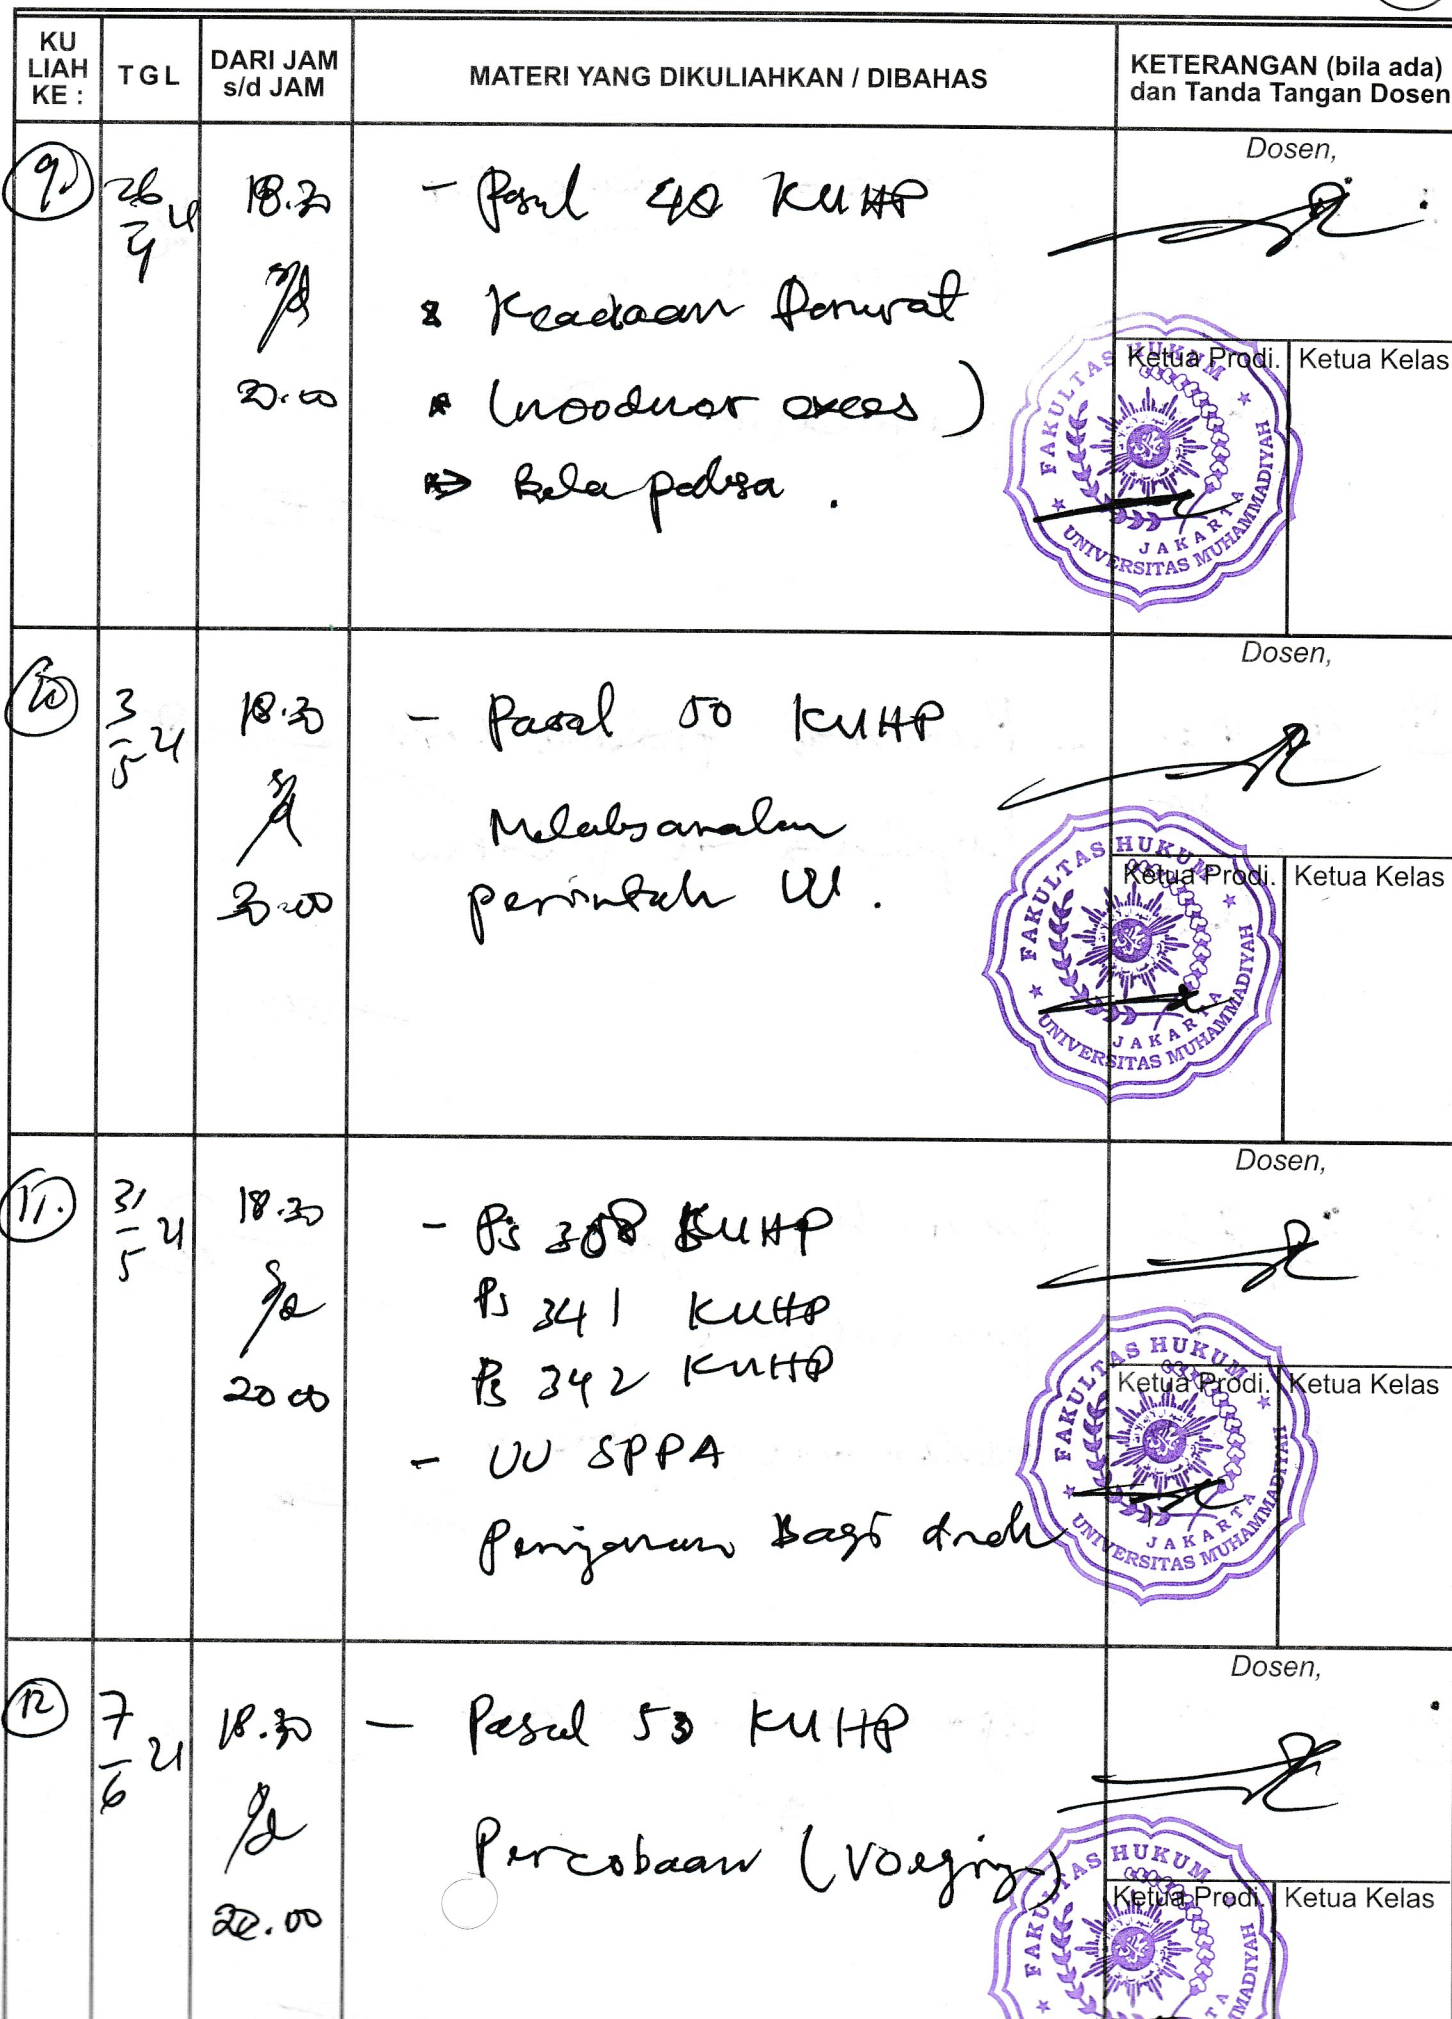 KU LIAH KE :
TGL
DARI JAM s/d JAM
MATERI YANG DIKULIAHKAN / DIBAHAS
KETERANGAN (bila ada) dan Tanda Tangan Dosen
9.
26/4 21
18.30
s/d
20.00
- Pasal 48 KUHP
* Keadaan Darurat
* (noodweer exces)
Bela paksa .
Dosen,
Ketua Prodi.
Ketua Kelas
FAKULTAS HUKUM
UNIVERSITAS MUHAMMADIYAH
JAKARTA
10
3/5 21
18.30
s/d
20.00
- Pasal 50 KUHP
Melaksanakan
perintah UU.
Dosen,
Ketua Prodi.
Ketua Kelas
FAKULTAS HUKUM
UNIVERSITAS MUHAMMADIYAH
JAKARTA
11.
31/5 21
18.30
s/d
20 00
- Ps 308 KUHP
Ps 341 KUHP
Ps 342 KUHP
- UU SPPA
Penjara Bagi Anak
Dosen,
Ketua Prodi.
Ketua Kelas
FAKULTAS HUKUM
UNIVERSITAS MUHAMMADIYAH
JAKARTA
12
7/6 21
18.30
s/d
20.00
- Pasal 53 KUHP
Percobaan
Dosen,
Ketua Prodi.
Ketua Kelas
FAKULTAS HUKUM